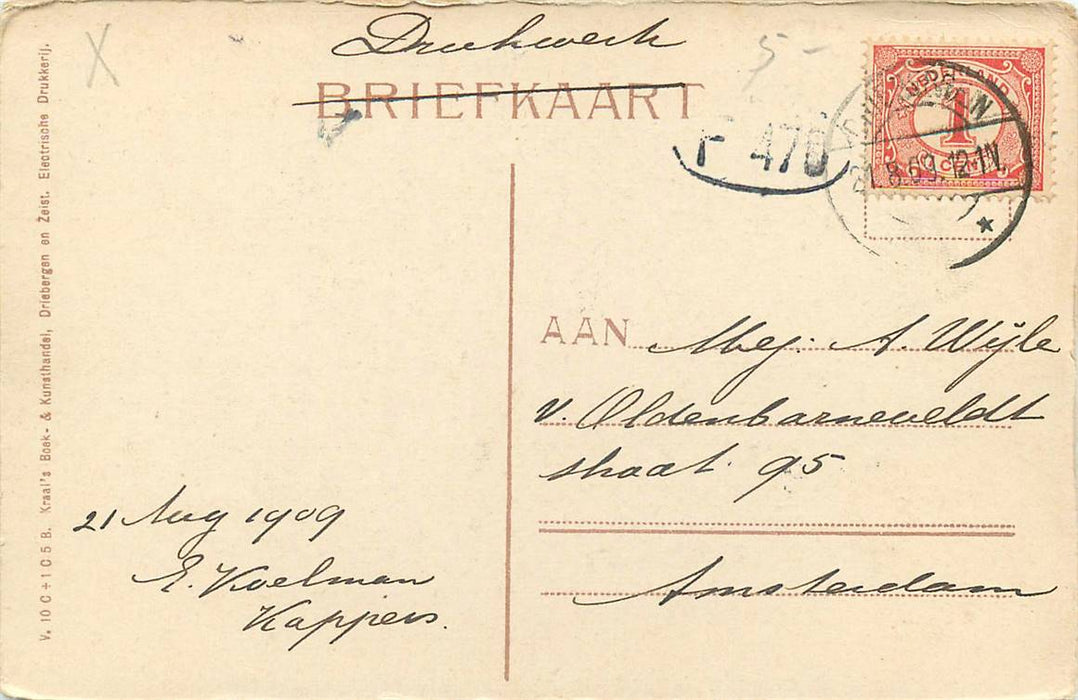 Drukwerk
BRIEFKAART
X
5-
F 470
NEDERLAND
1
21.8.09.12-1N.
AAN Mej. A. Wijle
v. Oldenbarneveldt
straat. 95
Amsterdam
21 Aug 1909
E. Koelman
Kappers.
V. 10 C + 1 0 5 B. Kraal's Boek- & Kunsthandel, Driebergen en Zeist. Electrische Drukkerij.